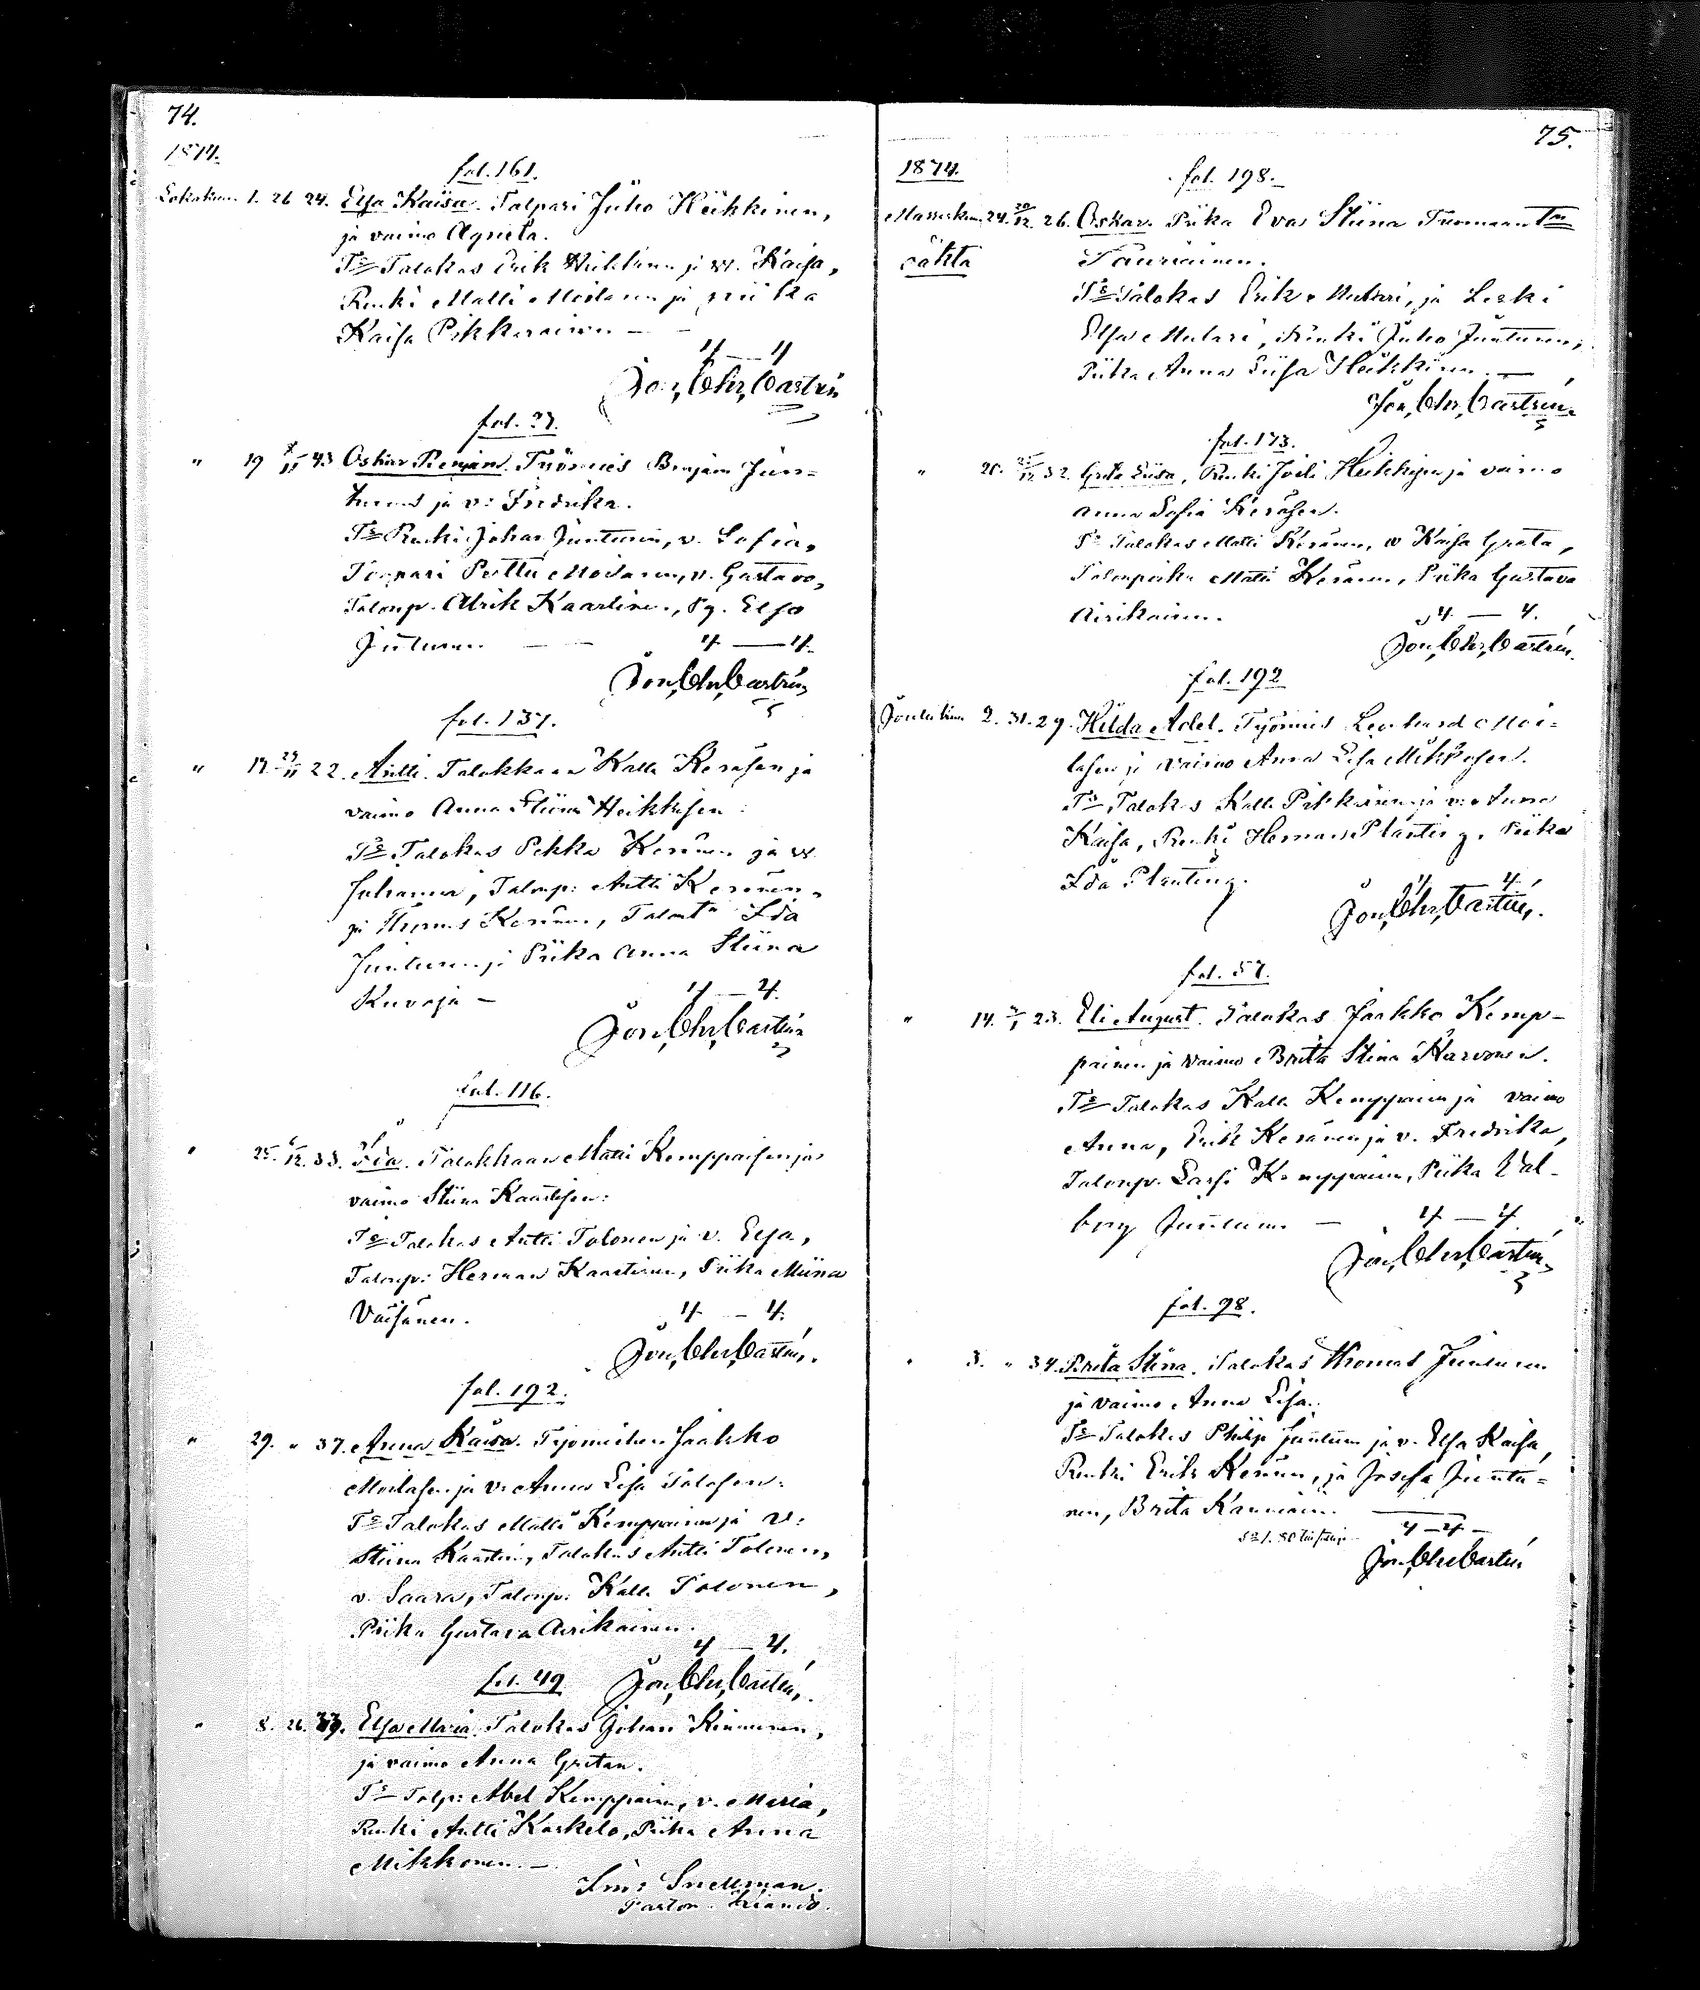 74.
1874.
fol. 161.
Lokakuu. 1. 26 24. Elsa Kaisa. Talpari Juho Heikkinen,
ja vaimo Agneta.
Ts Talokas Erik Heikkinen ja w. Kaisa,
Renki Matti Moilanen ja piika
Kaisa Pikkarainen —
4 — 4
Joh, Chr, Castrén
fol.
" 19 43 Oskar Benjam. Työmies Benjam Jun=
tunens ja v: Fredrika.
Ts Renki Johan Juntunen, v. Sofia,
Torpari Perttu Moilanen, v. Gustava,
Talonp. Alrik Kaartinen, Pg. Elsa
Juntunen — 4 — 4.
Joh, Chr, Castrén
fol. 137.
" 22. Antti. Talokkaan Kalle Keräsen ja
vaimo Anna Stiina Heikkisen:
Ts Talokas Pekka Keränen ja w.
Johanna, Talonp: Antti Keränen,
ja Thomas Keränen, Talont Ida
Juntunen ja Piika Anna Stiina
Kuvaja — 4 — 4.
Joh, Chr, Castrén
fol. 116.
" 25. 6/12. 33. Ida. Talokkaan Matti Kemppaisen ja
vaimo Stiina Kaartisen:
Ts Talokas Antti Tolonen ja v. Elsa,
Talonp: Herman Kaartinen, Piika Miina
Väisänen. 4 — 4.
Joh, Chr, Castrén,
fol. 192.
" 29. " 37. Anna Kaisa. Työmiehen Jaakko
Moilasen ja v: Anna Lisa Talasen:
Ts Talokas Matti Kemppainen ja w:
Stiina Kaartin, Talokas Antti Tolonen,
v. Saara, Talonp: Kalle Tolonen,
Piika Gustava Airikainen.
4 — 4.
Joh, Chr, Castrén,
fol. 49
" 8. 26. 39. Elsa Maria. Talokas Johan Kinnunen,
ja vaimo Anna Gretan.
Ts Talp: Abel Kemppainen, v. Maria,
Renki Antti Karkelo, Piika Anna
Mikkonen. —
Snellman.
Pastor.
75.
1874.
fol. 198.
Marraskuu. 24. 20/12. 26. Oskar. Piika Eva Stiina Tuomaantr
Tauriainen.
Ts Talokas Erik Mulari, ja Leski
Elsa Mulari, Renki Juho Juntunen,
Piika Anna Liisa Heikkinen. —
Joh, Chr, Castrén
fol. 173.
" 32. Greta Liisa, Renki Joeli Heikkisen ja vaimo
Anna Sofia Keräsen.
Ts Talokas Matti Keränen, w Kaisa Greta,
Talonpoika Matti Keränen, Piika Gustava
Airikainen. 4 — 4.
Joh, Chr, Castrén.
fol. 192
Joulukuu 2. 31. 29. Hilda Adel. Työmies Leonhard Moi=
lasen ja vaimo Anna Lisa Mikkosen.
Ts Talokas Kalle Pikkarainen ja v: Anna
Kaisa, Renki Herman Planting, Piika
Ida Planting. 4 — 4.
Joh, Chr, Castrén,
fol. 57.
" 14. 23. Eli August. Talokas Jaakko Kemp-
painen ja vaimo Brita Stina Karvonen.
Ts Talokas Kalle Kemppainen ja vaimo
Anna, Erik Keränen ja v. Fredrika,
Talonp. Lassi Kemppainen, Piika Val-
borg Juntunen — 4 — 4
Joh, Chr, Castrén
fol. 98.
" 3. " 34. Brita Stina. Talokas Thomas Juntunen
ja vaimo Anna Lisa.
Ts Talokas Philip Juntunen ja v. Elsa Kaisa,
Renki Erik Keränen, ja Josefa Juntu=
nen, Brita Kauniainen. —
4 — 4 —
Joh, Chr, Castrén